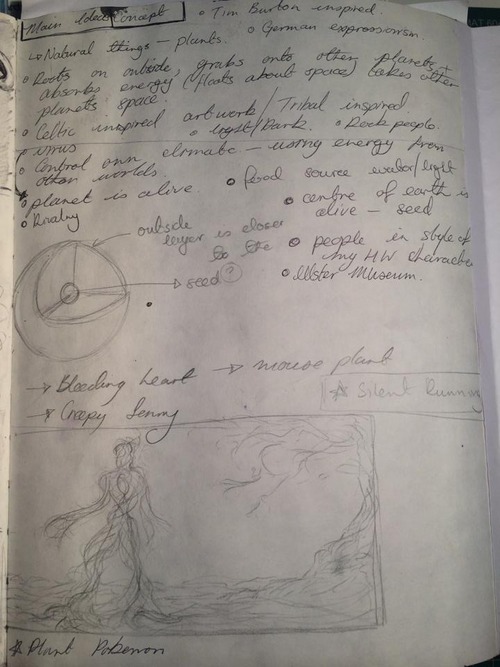 Main Idea/Concept
• Tim Burton inspired
• German expressionism.
↳ Natural things – plants.
• Roots on outside, grabs onto other planets +
absorbs energy (floats about space) takes other
planets space.
• Celtic inspired artwork/Tribal inspired
• virus
• Light/Dark.
• Rock people.
• Control own climatic – using energy from
other worlds.
• planet is alive.
• food source water/light
• Rivalry
• centre of earth is
alive – seed
outside
layer is closer
to the
• people in style of
my HW character
→ seed?
• Ulster Museum.
→ Bleeding heart
→ mouse plant
* Creepy Jenny
* Silent Running
* Plant Pokemon